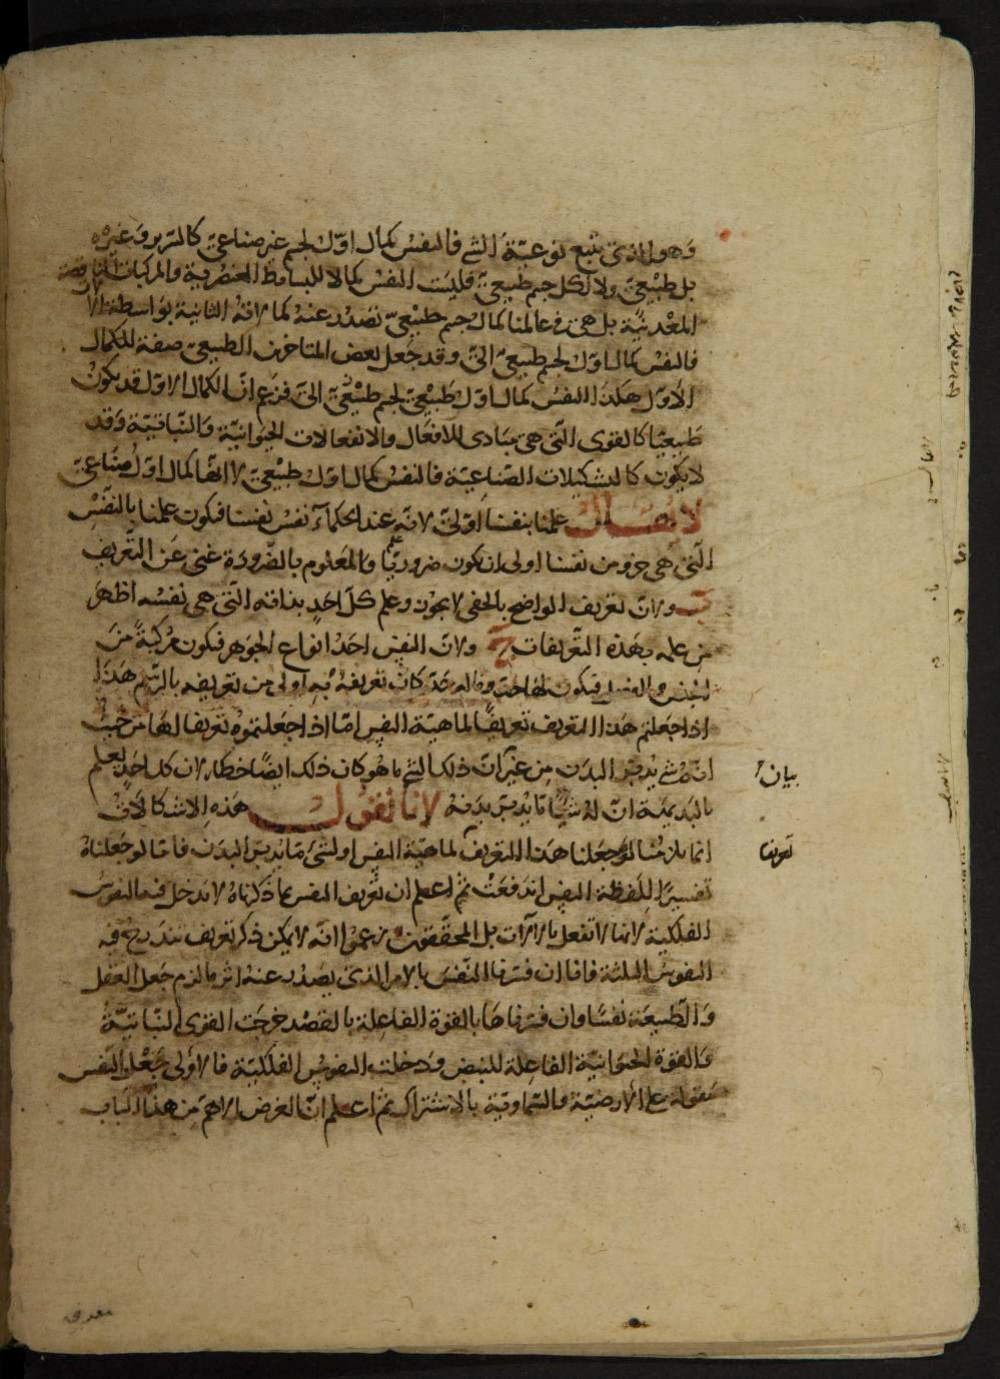 وهو الذي يتبع نوعية الشيء فالنفس كمال اول لجسم غير صناعي كالسرير وغيره
بل طبيعي ولا لكل جسم طبيعي فليست النفس كمالا للبسائط العنصرية والمركبات الناقصة
المعدنية بل هي في عالمنا كمال جسم طبيعي تصدر عنه كمالاته الثانية بواسطة الآلات
فالنفس كمال اول لجسم طبيعي آلي وقد جعل بعض المتاخرين الطبيعي صفة للكمال
الاول هكذا النفس كمال اول طبيعي لجسم طبيعي آلي فزعم ان الكمال الاول قد يكون
طبيعيا كالقوى التي هي مبادى للافعال والانفعالات الحيوانية والنباتية وقد
لا يكون كالتشكيلات الصناعية فالنفس كمال اول طبيعي لا انها كمال اول صناعي
لا يقال علمنا بنفسنا اولي لانه عند الحكماء نفس نفسنا فيكون علمنا بالنفس
التي هي جزو من نفسنا اولى ان يكون ضروريا والمعلوم بالضرورة غني عن التعريف
ب ولان تعريف الواضح بالخفي لا يجوز وعلم كل احد بذاته التي هي نفسه اظهر
من علمه بهذه التعريفات ج ولان النفس احد انواع الجوهر فيكون مركبة من
الجنس والفصل فيكون لها حد وماله حد كان تعريفه به اولى من تعريفه بالرسم هذا
اذا جعلتم هذا التعريف تعريفا لماهية النفس اما اذا جعلتموه تعريفا لها من حيث
انه شيء يدبر البدن من غير ان ذلك الشيء ما هو كان ذلك ايضا خطا لان كل احد يعلم
بيان
بالبديهة ان له شيئا ما يدبر بدنه لانا نقول هذه الاشكالات
انما يلزمنا لو جعلنا هذا التعريف لماهية النفس او لشيء ما يدبر البدن فاما لو جعلناه
تعريفا
تفسيرا للفظة النفس اندفعت ثم اعلم ان تعريف النفس بما ذكرناه لا تدخل فيه النفوس
الفلكية لانها لا تفعل بالآلات بل المحققون زعموا انه لا يمكن ذكر تعريف تندرج فيه
النفوس الثلثة فانا ان فسرنا النفس بالامر الذي يصدر عنه اثر ما لزم جعل العقل
والطبيعة نفسا وان فسرناها بالقوة الفاعلة بالقصد خرجت القوى النباتية
والقوة الحيوانية الفاعلة للنبض ودخلت النفوس الفلكية فالاولى جعل النفس
مقولة على الارضية والسماوية بالاشتراك ثم اعلم ان الغرض الاهم من هذا الباب
معرفة